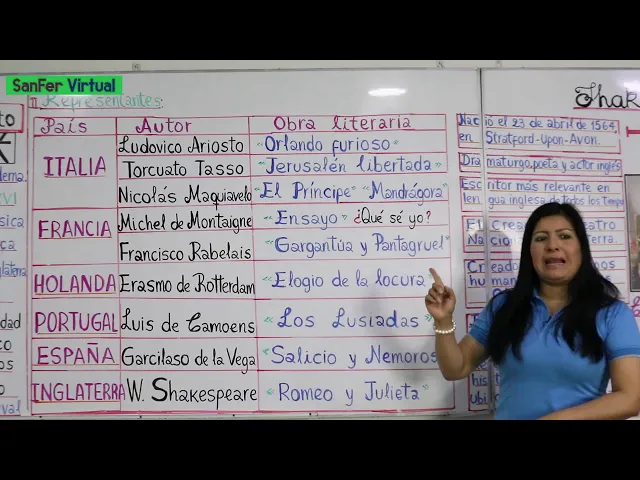 SanFer Virtual
II Representantes:
País Autor Obra literaria
ITALIA
Ludovico Ariosto "Orlando furioso"
Torcuato Tasso "Jerusalén libertada"
Nicolás Maquiavelo "El Príncipe" "Mandrágora"
FRANCIA
Michel de Montaigne "Ensayo" ¿Qué sé yo?
Francisco Rabelais "Gargantúa y Pantagruel"
HOLANDA Erasmo de Rotterdam "Elogio de la locura
PORTUGAL Luis de Camoens "Los Lusiadas"
ESPAÑA Garcilaso de la Vega "Salicio y Nemoros
INGLATERRA W. Shakespeare "Romeo y Julieta"
Shak
Nació el 23 de abril de 1564,
en Stratford-Upon-Avon.
Dramaturgo, poeta y actor inglés
Escritor más relevante en
lengua inglesa de todos los tiempo